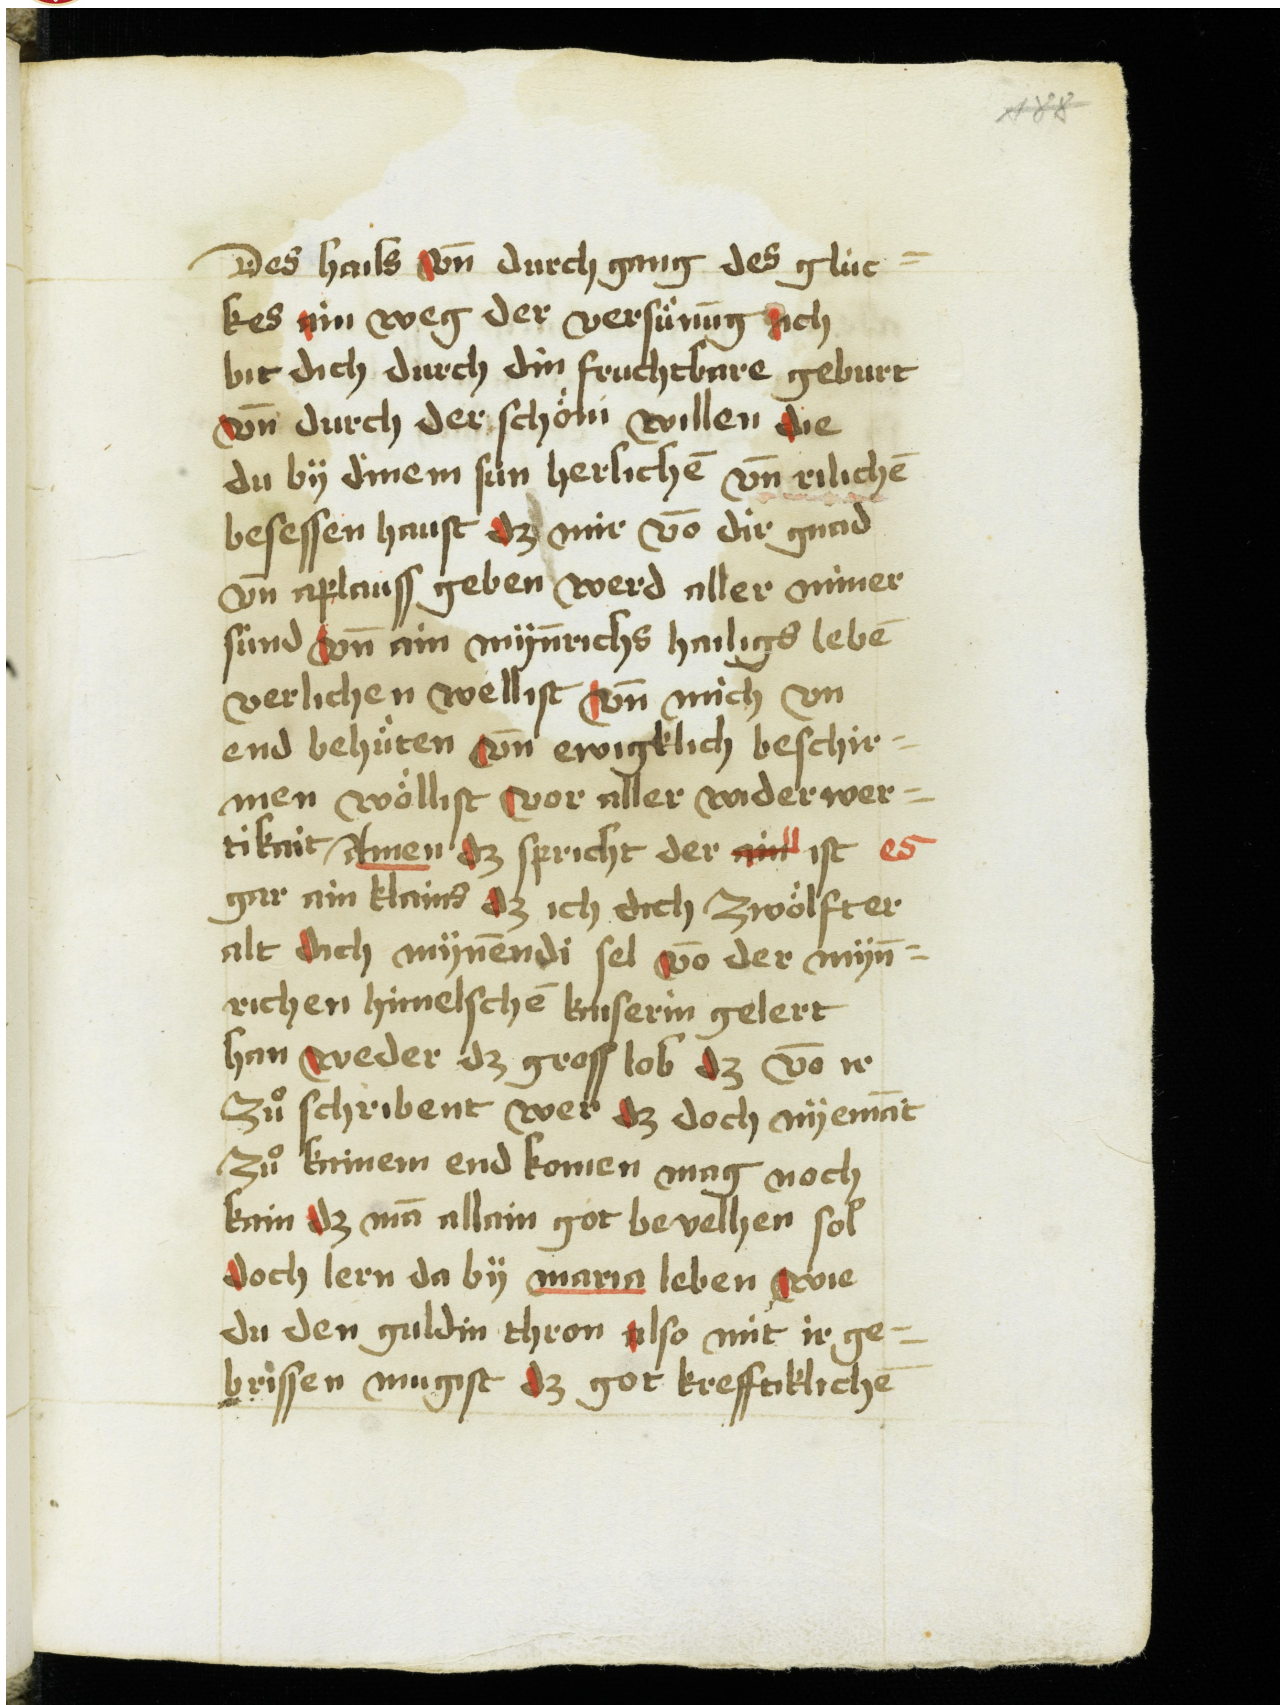 188
Des hails vn̄ durch gang des glüc=
kes ain weg der versünu̅g ich
bit dich durch din fruchtbare geburt
vn̄ durch der schöni willen die
du bÿ dinem sun herlichē vn̄ rilichē
besessen haust dz mir vo̅ dir gnad
vn̄ aplauss geben werd aller miner
sünd vn̄ ain mÿn̄richs hailigs lebē
verlichen wellist vn̄ mich vn
end behüten vn̄ ewigklich beschir=
men wöllist vor aller widerwer=
tikait Amen dz spricht der ain ist es
gar ain klains dz ich dich Zwölfter
alt dich mÿnēndi sel vo̅ der mÿn̄=
richen himelschē kaiserin gelert
han weder dz gross lob dz vo̅ ir
Zů schribent wer dz doch nÿemāt
Zů kainem end komen mag noch
kain dz mā allain got bevelhen sol
doch lern da bÿ maria leben wie
du den guldin thron also mit ir ge=
brissen mugist dz got krefftiklichē